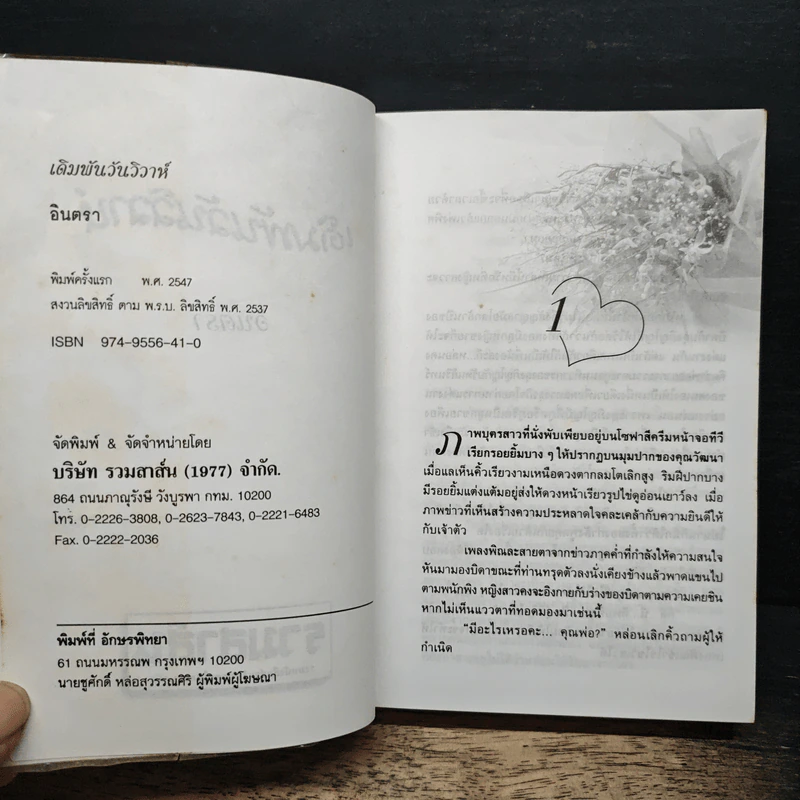 เดิมพันวันวิวาห์
อินตรา
พิมพ์ครั้งแรก พ.ศ. 2547
สงวนลิขสิทธิ์ ตาม พ.ร.บ. ลิขสิทธิ์ พ.ศ. 2537
ISBN 974-9556-41-0
จัดพิมพ์ & จัดจำหน่ายโดย
บริษัท รวมสาส์น (1977) จำกัด.
864 ถนนภาณุรังษี วังบูรพา กทม. 10200
โทร. 0-2226-3808, 0-2623-7843, 0-2221-6483
Fax. 0-2222-2036
พิมพ์ที่ อักษรพิทยา
61 ถนนมหรรณพ กรุงเทพฯ 10200
นายชูศักดิ์ หล่อสุวรรณศิริ ผู้พิมพ์ผู้โฆษณา
1
ภาพบุตรสาวที่นั่งพับเพียบอยู่บนโซฟาสีครีมหน้าจอทีวี
เรียกรอยยิ้มบาง ๆ ให้ปรากฏบนมุมปากของคุณวัฒนา
เมื่อแลเห็นคิ้วเรียวงามเหนือดวงตากลมโตเลิกสูง ริมฝีปากบาง
มีรอยยิ้มแต่งแต้มอยู่ส่งให้ดวงหน้าเรียวรูปไข่ดูอ่อนเยาว์ลง เมื่อ
ภาพข่าวที่เห็นสร้างความประหลาดใจคละเคล้ากับความยินดีให้
กับเจ้าตัว
เพลงพิณละสายตาจากข่าวภาคค่ำที่กำลังให้ความสนใจ
หันมามองบิดาขณะที่ท่านทรุดตัวลงนั่งเคียงข้างแล้วพาดแขนไป
ตามพนักพิง หญิงสาวคงจะอิงกายกับร่างของบิดาตามความเคยชิน
หากไม่เห็นแววตาที่ทอดมองมาเช่นนี้
“มีอะไรเหรอคะ... คุณพ่อ?” หล่อนเลิกคิ้วถามผู้ให้
กำเนิด